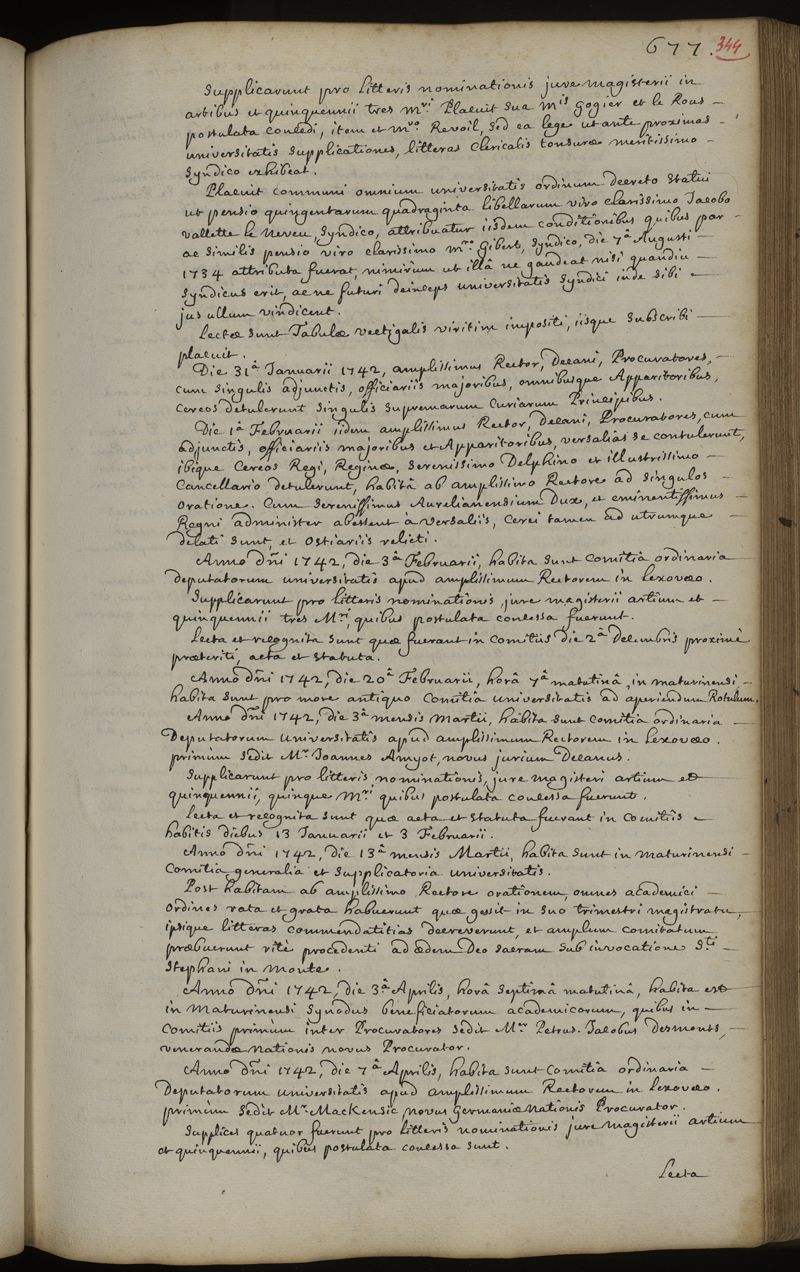 677. 344
Supplicarunt pro litteris nominationis jure magisterii in
artibus et quinquennii tres Mri. Placuit sua Mis Gogier et le Rous –
postulata concedi, item et Mro. Revoil, sed ea lege ut ante proximas –
universitatis supplicationes, litteras clericalis tonsuræ meritissimo –
Syndico exhibeat.
Placuit communi omnium universitatis ordinum decreto statui
ut pensio quingentarum quadraginta libellarum viro clarissimo Jacobo
Vallette le Neveu, Syndico, attribuatur iisdem conditionibus quibus par –
ac similis pensio viro clarissimo Mro. Gibert, Syndico, die 7â Augusti –
1734 attributa fuerat, nimirùm ut illâ ne gaudeat nisi quandiu –
Syndicus erit, ac ne futuri deinceps universitatis Syndici inde sibi –
jus ullum vindicent.
Lectæ sunt Tabulæ vectigalis viritim impositi, iisque subscribi –
placuit.
Die 31â Januarii 1742, amplissimus Rector, Decani, Procuratores, –
cum singulis adjunctis, officiariis majoribus, omnibusque Apparitoribus,
Cereos detulerunt singulis supremarum Curiarum Principibus.
Die 1â Februarii iidem amplissimus Rector, Decani, Procuratores, cum
adjunctis, officiariis majoribus et Apparitoribus, Versalias se contulerunt,
ibique Cereos Regi, Reginæ, Serenissimo Delphino et illustrissimo –
Cancellario detulerunt, habitâ ab amplissimo Rectore ad singulos –
oratione. Cum Serenissimus Aurelianensium Dux, et eminentissimus –
Regni administer abessent à Versaliis, Cerei tamen ad utrumque –
delati sunt, et Ostiariis relicti.
Anno dñi 1742, die 3â Februarii, habita sunt Comitia ordinaria
Deputatorum universitatis apud amplissimum Rectorem in Lexovæo.
Supplicarunt pro litteris nominationis, jure magisterii artium et –
quinquennii tres Mri, quibus postulata concessa fuerunt.
Lecta et recognita sunt quæ fuerant in Comitiis die 2â Decembris proximè
præteriti, acta et statuta.
Anno dñi 1742, die 20â Februarii, horâ 7â matutinâ, in maturinensi –
habita sunt pro more antiquo Comitia universitatis ad aperiendum Rotulum.
Anno dñi 1742, die 3â mensis Martii, habita sunt comitia ordinaria –
Deputatorum universitatis apud amplissimum Rectorem in Lexovæo.
primùm sedit Mr. Joannes Amyot, novus jurium Decanus.
Supplicarunt pro litteris nominationis, jure magisteri artium et
quinquennii, quinque Mri quibus postulata concessa fuerunt.
Lecta et recognita sunt quæ acta et statuta fuerant in Comitiis –
habitis diebus 13 Januarii et 3 Februarii.
Anno dñi 1742, die 13â mensis Martii, habita sunt in maturinensi –
Comitia generalia et supplicatoria universitatis.
Post habitam ab amplissimo Rectore orationem, omnes academici –
ordines rata et grata habuerunt quæ gessit in suo trimestri magistratu,
ipsique litteras commendatitias decreverunt, et amplum comitatum
præbuerunt ritè procedenti ad ædem Deo sacram sub invocatione Sti –
Stephani in monte.
Anno dñi 1742, die 3â Aprilis, horâ septimâ matutinâ, habita est
in Maturinensi Synodus beneficiatorum academicorum, quibus in –
Comitiis primùm inter Procuratores sedit Mr. Petrus-Jacobus Desmonts, –
venerandæ nationis novus Procurator.
Anno dñi 1742, die 7â Aprilis, habita sunt Comitia ordinaria –
Deputatorum universitatis apud amplissimum Rectorem in Lexovæo.
primùm sedit Mr. Mackensie novus Germaniæ nationis Procurator.
Supplices quatuor fuerunt pro litteris nominationis jure magisterii artium
et quinquennii, quibus postulata concessa sunt.
Lecta